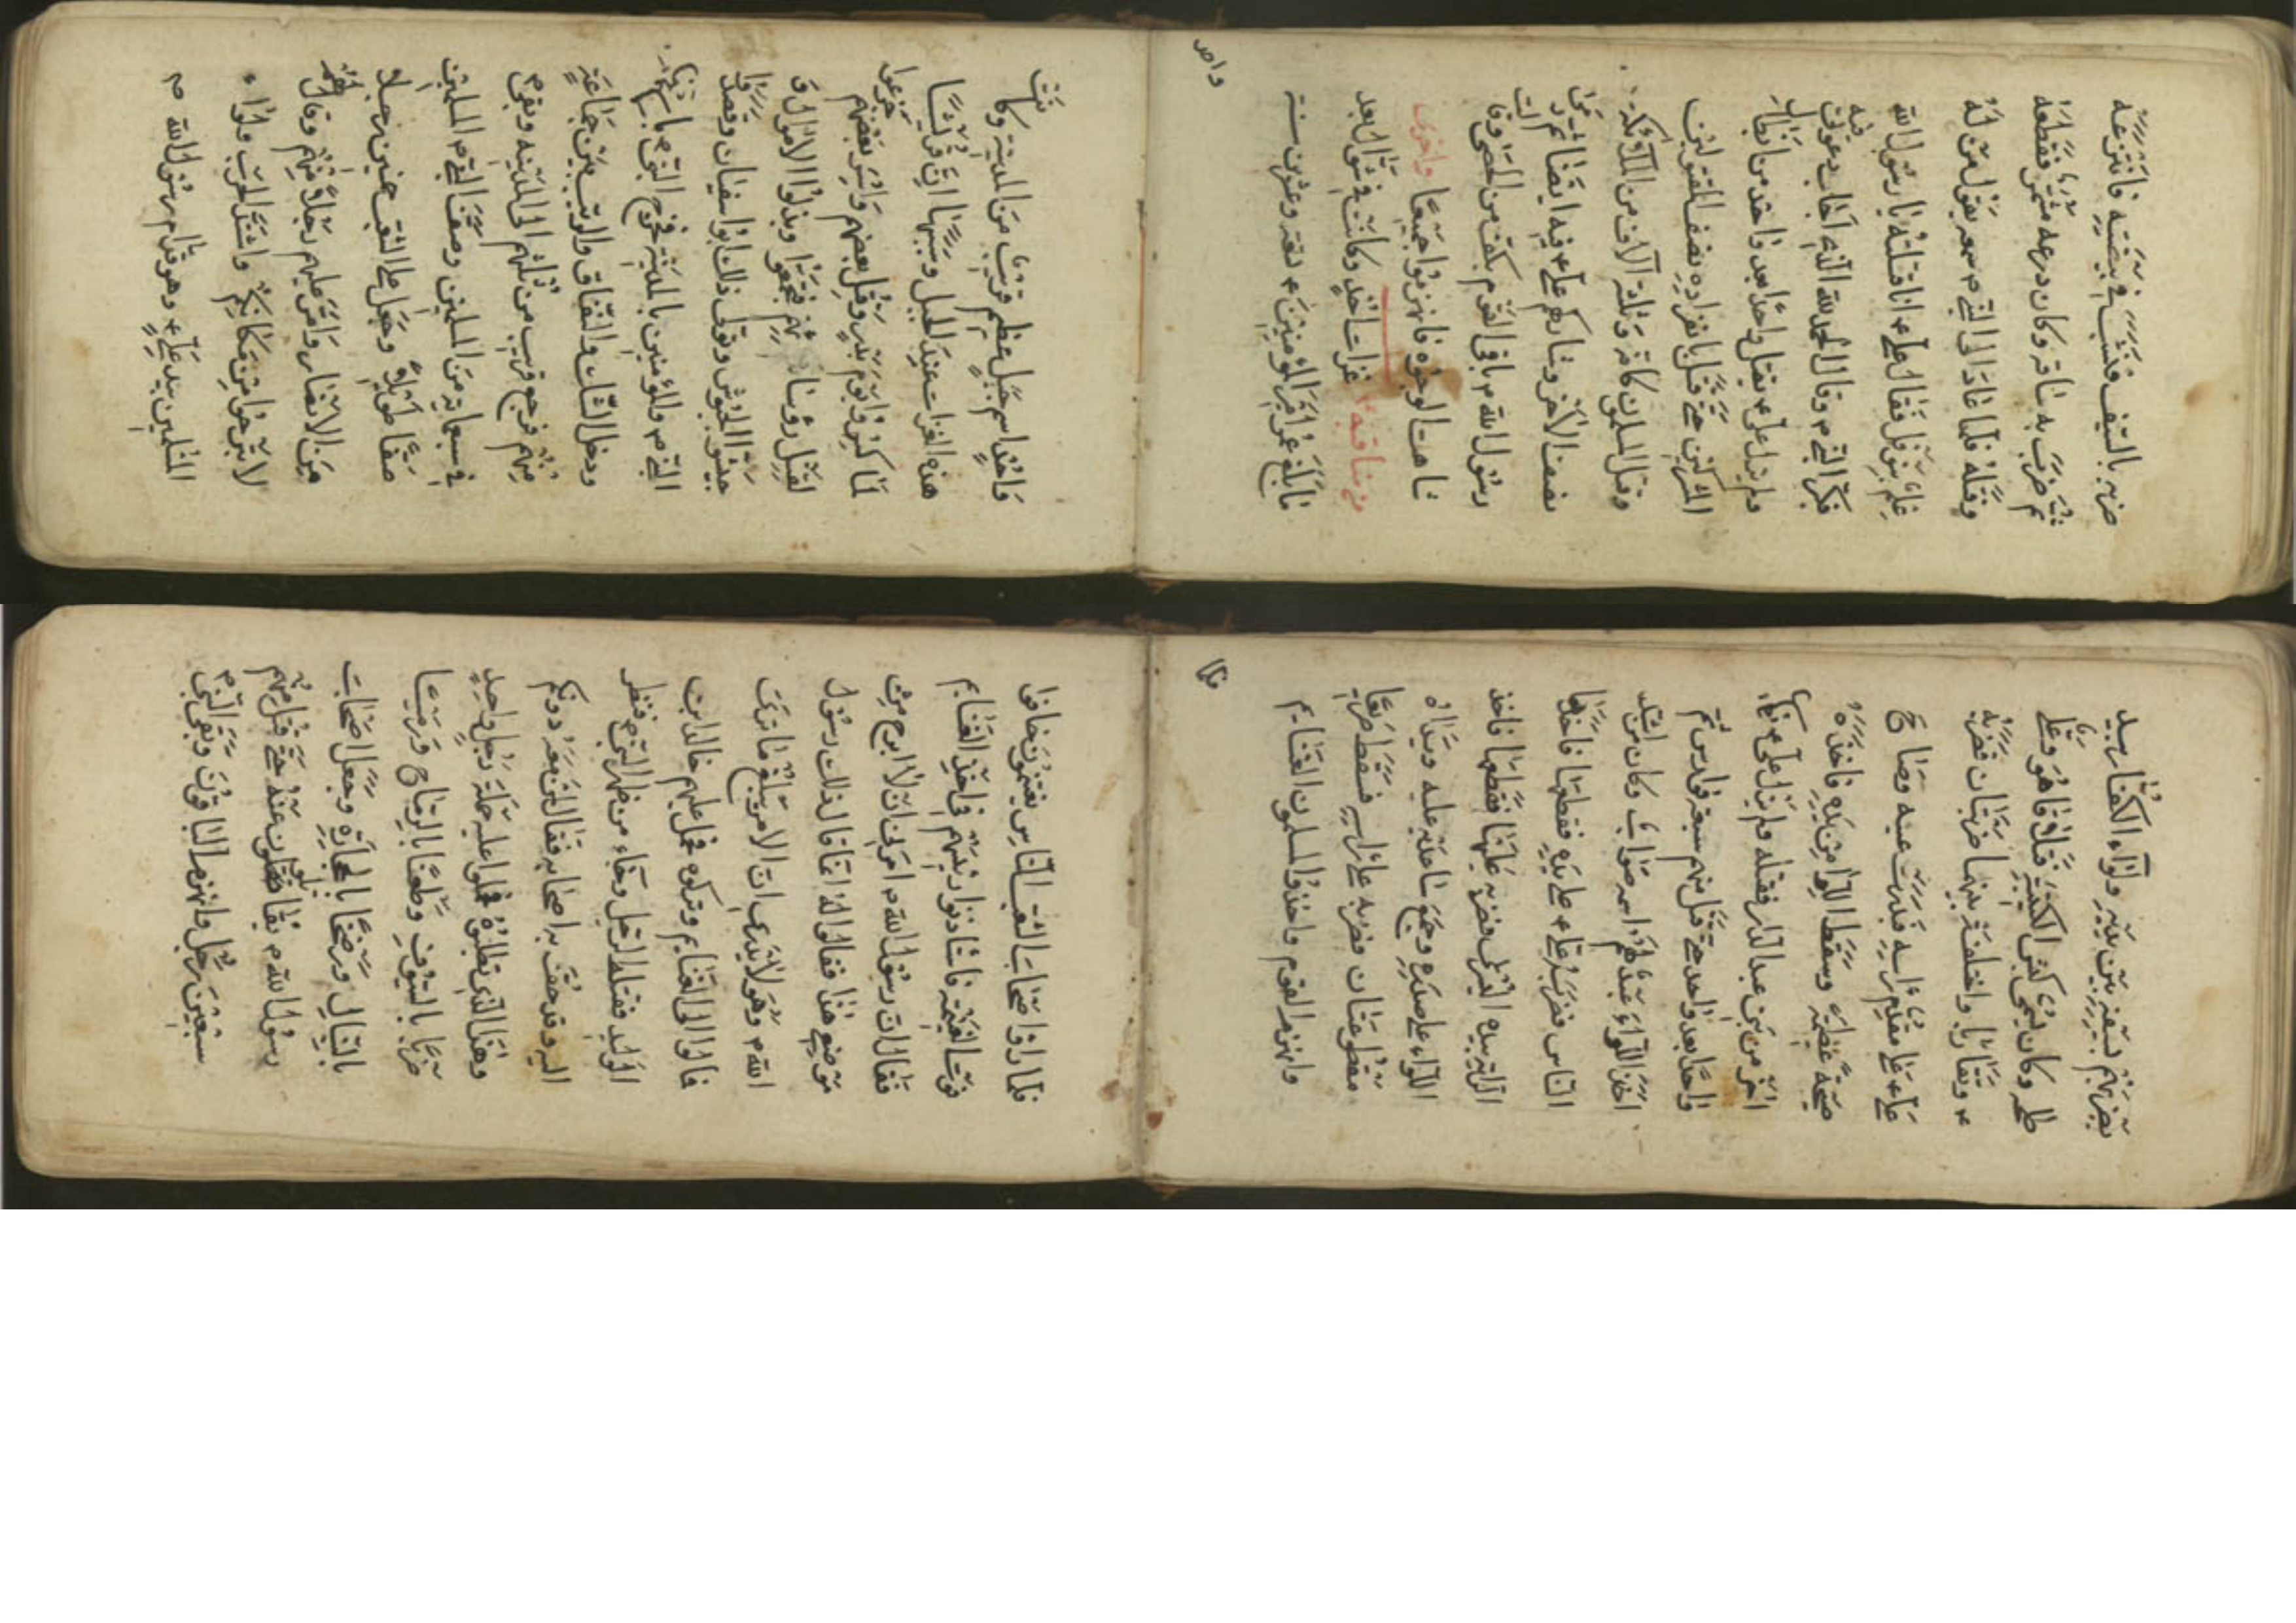 ضربه بالسيف فنشب في بيضته فانتزعه
ثم ضرب به ساقه وكان درعه مشمرة فقطعه
وقتله فلما عاد الى النبي ص سمعه يقول من له
علم بنوفل فقال علي ع انا قتلته يا رسول الله
فكبر النبي ص وقال الحمد لله الذي اجاب دعوتي فيه
ولم يزل علي ع يقتل واحدا بعد واحد من ابطال
المشركين حتى قتل بانفراده نصف المقتولين
وقتل المسلمون كافة وثلثة آلاف من الملائكة
نصف الاخر وشاركهم علي ع فيه ايضا ثم رمى
رسول الله ص باقي القوم بكف من الحصى وقال
شاهت الوجوه فانهزموا جميعا واخرى
من مناقبه غزات احد وكانت في شوال بعد
ما بلغ عمر امير المؤمنين ع تسعة وعشرون سنة
واحد
واحد اسم جبل عظيم قريب من المدينة وكانت
هذه الغزات عند الجبل وسببها ان قريشا
لما كسروا يوم بدر وقتل بعضهم واسر بعضهم جزعوا
لقتل رؤسائهم فتجمعوا وبذلوا الاموال و
جيشوا الجيوش وتولى ذلك ابو سفيان وقصدوا
النبي ص والمؤمنين بالمدينة فخرج النبي ص
ودخل الشك والنفاق والريب بين جماعة
منهم فرجع قريب من ثلثهم الى المدينة وبقي ص
في سبعماية من المسلمين وصف النبي ص المسلمين
صفا طويلا وجعل على الشعب خمسين رجلا
من الانصار وامر عليهم رجلا منهم وقال لهم
لا تبرحوا من مكانكم واشتد الحرب ولواء
المسلمين بيد علي ع وهو قدام رسول الله ص
يضربهم بسيفه بين يديه ولواء الكفار بيد
طلحة وكان يسمى كبش الكتيبة فتلاقا هو وعلي
ع وتقاربا واختلفت بينهما ضربتان فضربه
علي ع على مقدم راسه فبدرت عينه وصاح
صيحة عظيمة وسقط اللواء من يده فاخذه
اخر من بني عبد الدار فقتله ولم يزل علي ع
واحدا بعد واحد حتى قتل منهم سبعة فوارس ثم
اخذ اللواء عبد لهم اسمه صواب وكان من اشد
الناس فضربه علي ع على يده فقطعها فاخذ
الراية بيده اليسرى فضربه عليها فقطعها فاخذ
اللواء على صدره وجمع ساعديه عليه ويداه
مقطوعتان فضربه على راسه فسقط صريعا
وانهزم القوم واخذوا المسلمون الغنايم
فلما
فلما راوا اصحاب الشعب الناس يغتنمون خافوا
فوت الغنيمة فاستاذنوا رئيسهم في اخذ الغنايم
فقال ان رسول الله ص امرني ان لا ابرح من
موضعي هذا فقالوا له انما قال ذلك رسول
الله ص وهو لا يدري ان الامر يبلغ ما نرى
فمالوا الى الغنايم وتركوه فحمل عليهم خالد ابن
الوليد فقتله الرجل وجاء من ظهر النبي ص فنظر
اليه وقد حفت به اصحابه فقال لمن معه دونكم
وهذا الذي تطلبوه فحملوا عليه حملة رجل واحد
ضربا بالسيوف وطعنا بالرماح ورميا
بالنبال ورضخا بالحجارة وجعل اصحاب
رسول الله ص يقاتلون عنه حتى قتل منهم
سبعين رجل وانهزم الباقون وبقي النبي ص